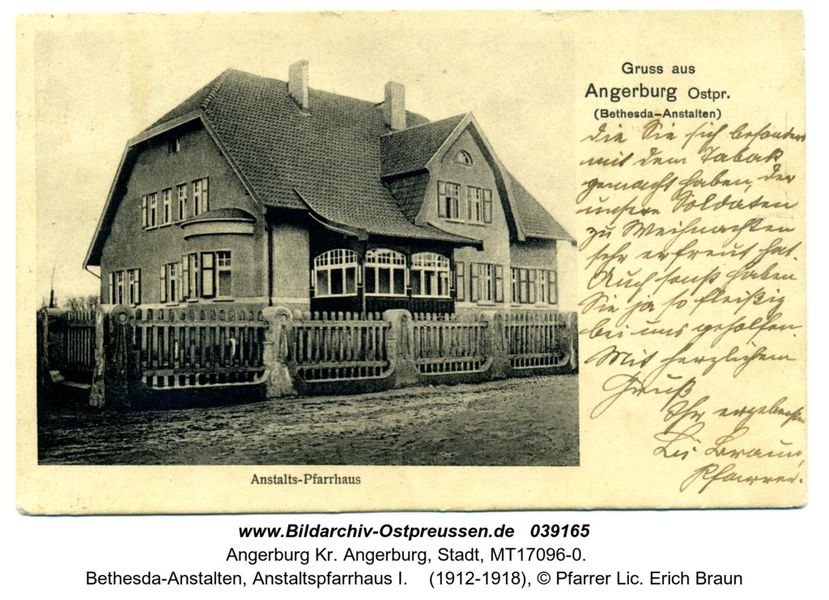 Gruss aus
Angerburg Ostpr.
(Bethesda-Anstalten)
die Sie sich besonders
mit dem Tabak
gemacht haben, der
unsere Soldaten
zu Weihnachten
sehr erfreut hat.
Auch sonst haben
Sie ja so fleißig
bei uns geholfen.
Mit herzlichem
Gruß
Ihr ergebenster
Lic Braun,
Pfarrer.
Anstalts-Pfarrhaus
www.Bildarchiv-Ostpreussen.de 039165
Angerburg Kr. Angerburg, Stadt, MT17096-0.
Bethesda-Anstalten, Anstaltspfarrhaus I. (1912-1918), © Pfarrer Lic. Erich Braun